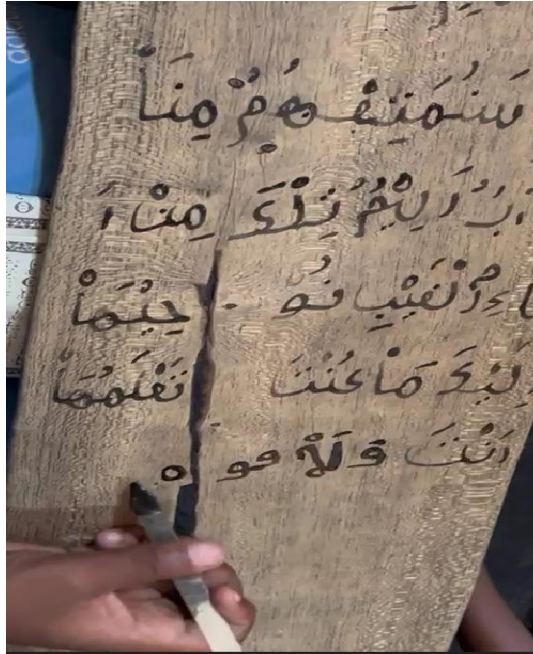 سَنُمَتِعُهُمْ مِنَاْ
اَبُ اَلِيْمُ تِلْكَ مِنْ اَ
اءِ الْغَيْبِ نُو حِيْهَاْ
اِلَيْكَ مَاْ كُنْتَ تَعْلَمُهَا
اَنْتَ وَلَاْ قو م